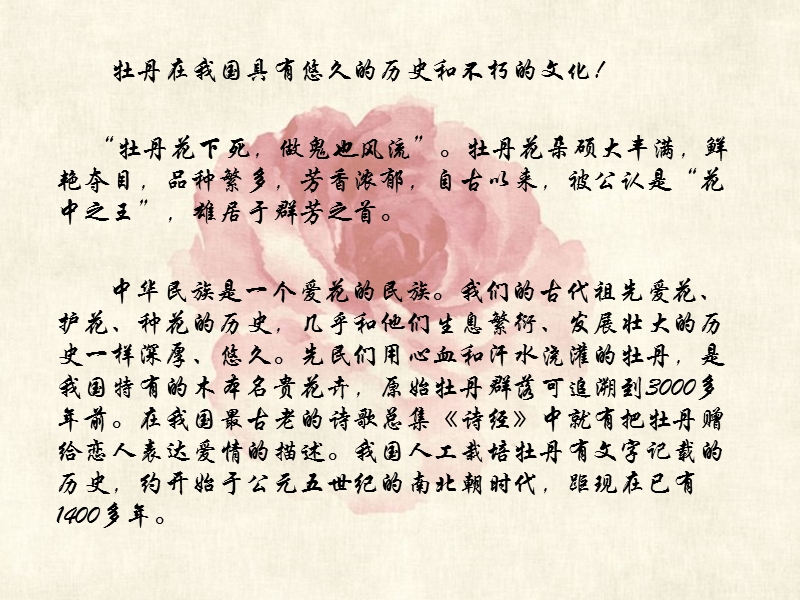 牡丹在我国具有悠久的历史和不朽的文化！
“牡丹花下死，做鬼也风流”。牡丹花朵硕大丰满，鲜
艳夺目，品种繁多，芳香浓郁，自古以来，被公认是“花
中之王”，雄居于群芳之首。
中华民族是一个爱花的民族。我们的古代祖先爱花、
护花、种花的历史，几乎和他们生息繁衍、发展壮大的历
史一样深厚、悠久。先民们用心血和汗水浇灌的牡丹，是
我国特有的木本名贵花卉，原始牡丹群落可追溯到3000多
年前。在我国最古老的诗歌总集《诗经》中就有把牡丹赠
给恋人表达爱情的描述。我国人工栽培牡丹有文字记载的
历史，约开始于公元五世纪的南北朝时代，距现在已有
1400多年。